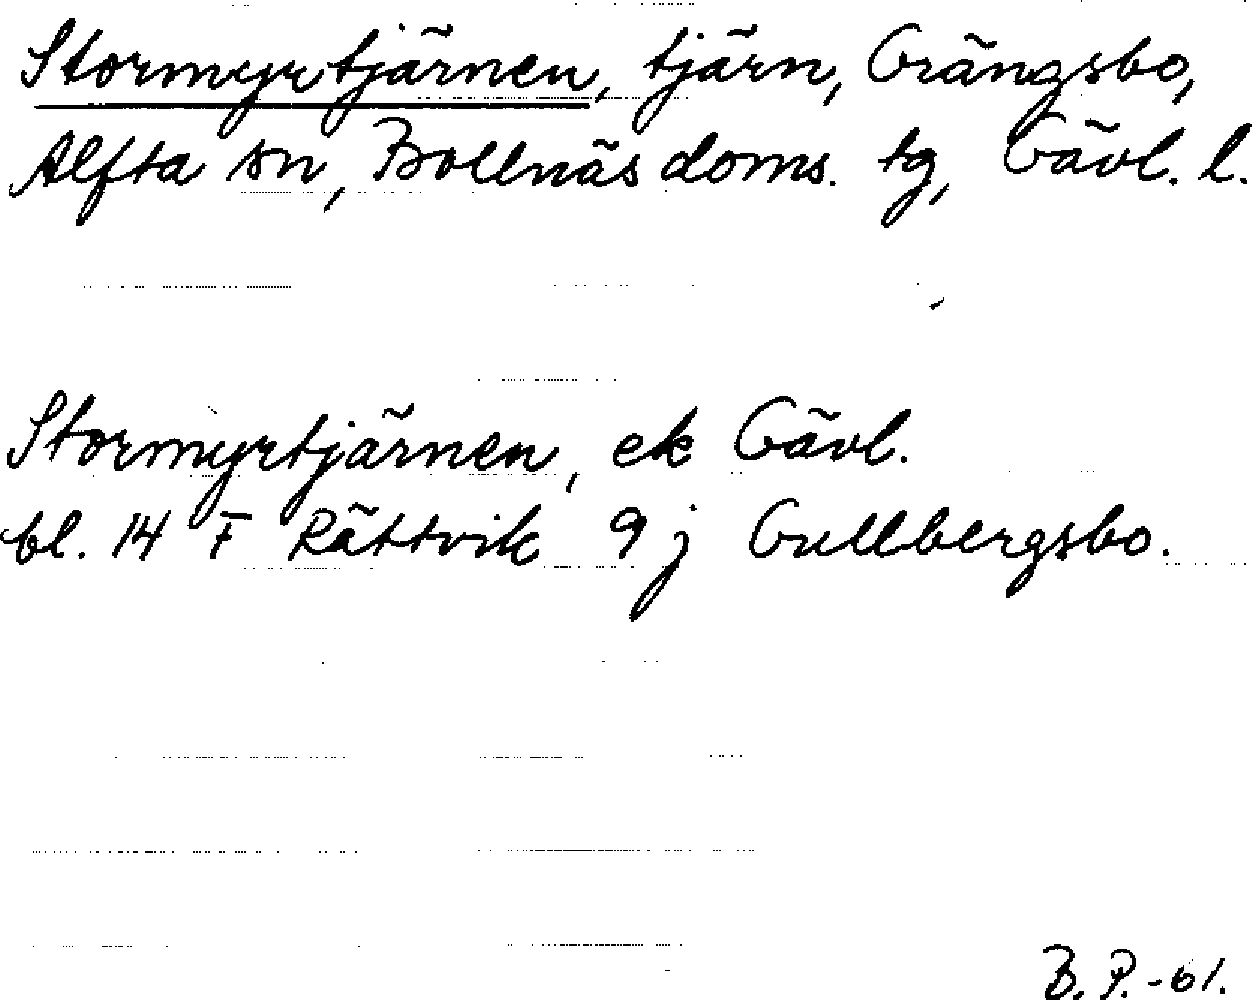 Stormyrtjärnen, tjärn, Grängsbo,
Alfta sn, Bollnäs doms. tg, Gävl. l.
Stormyrtjärnen, ek Gävl.
bl. 14 F Rättvik 9 j Gullbergsbo.
B. P. -61.